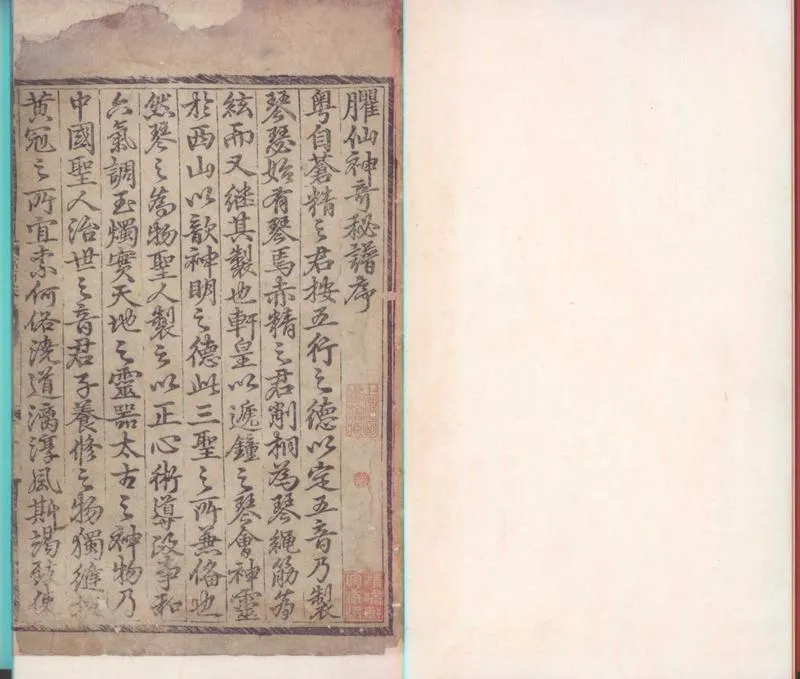 臞仙神奇秘譜序
粵自蒼精之君按五行之德以定五音乃製
琴瑟始有琴焉赤精之君削桐為琴繩筋為
絃而又繼其製也軒皇以遞鐘之琴會神靈
於西山以歆神明之德此三聖之所兼俻也
然琴之為物聖人製之以正心術導政事和
六氣調玉燭實天地之靈噐太古之神物乃
中國聖人治世之音君子養修之物獨縫掖
黃冠之所宜柰何俗澆道漓淳風斯竭致使